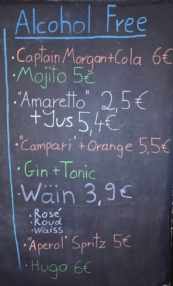 Alcohol Free
• Captain Morgan + Cola 6€
• Mojito 5€
• "Amaretto" 2,5€
+ Jus 5,4€
• "Campari" + Orange 5,5€
• Gin + Tonic
• Wäin 3,9€
• Rosé
• Roud
• Waiss
• "Aperol" Spritz 5€
• Hugo 6€